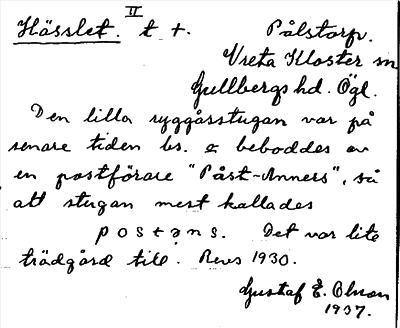 Hässlet. II t +. Pålstorp.
Vreta Kloster sn
Gullbergs hd. Ögl.
Den lilla ryggåsstugan var på
senare tiden bs. o. beboddes av
en postförare "Påst-Anners", så
att stugan mest kallades
postəns. Det var lite
trädgård till. Revs 1930.
Gustaf E. Olsson
1937.